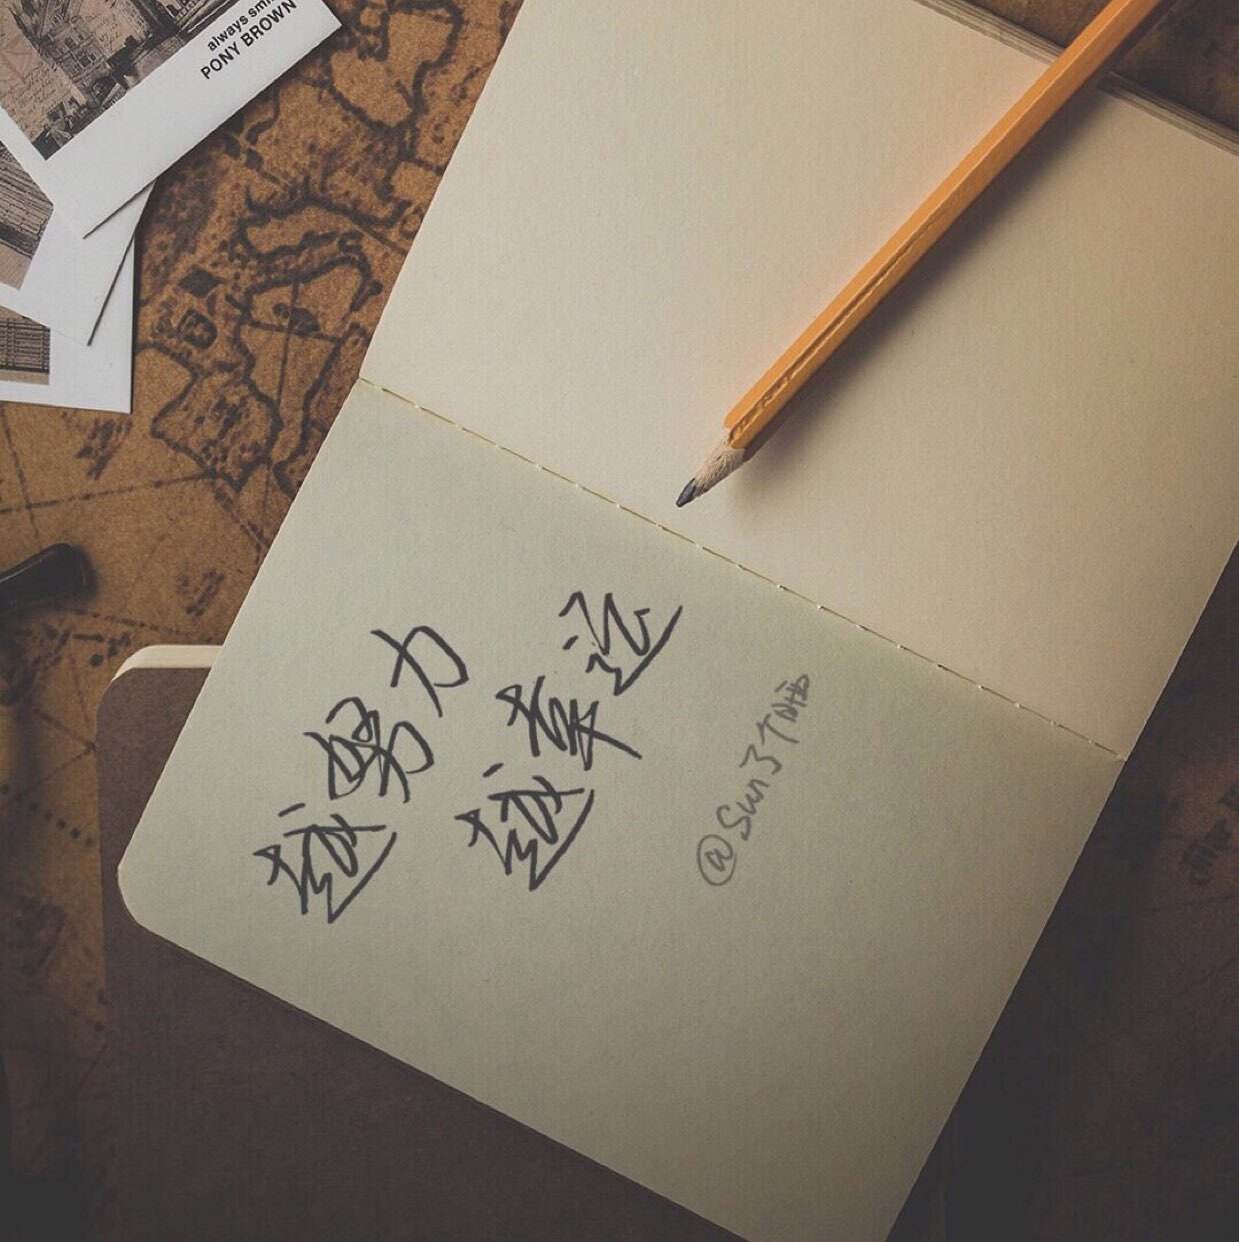 always smi
PONY BROWN
越努力
越幸运
@Sun了个晒